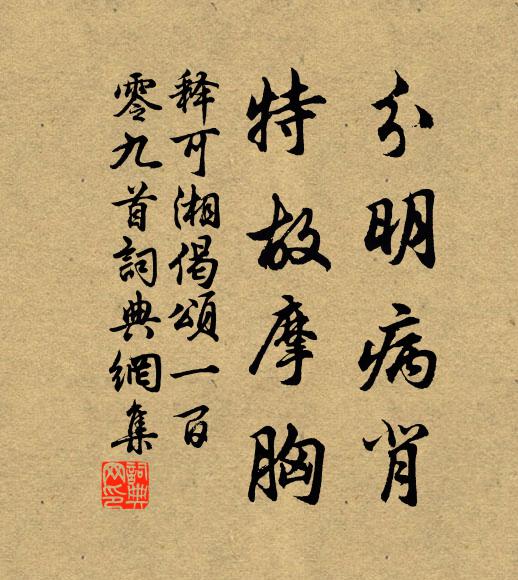 分明病肖
特故摩胸
释可湘偈頌一百
零九首詞典網集
詞典
网印